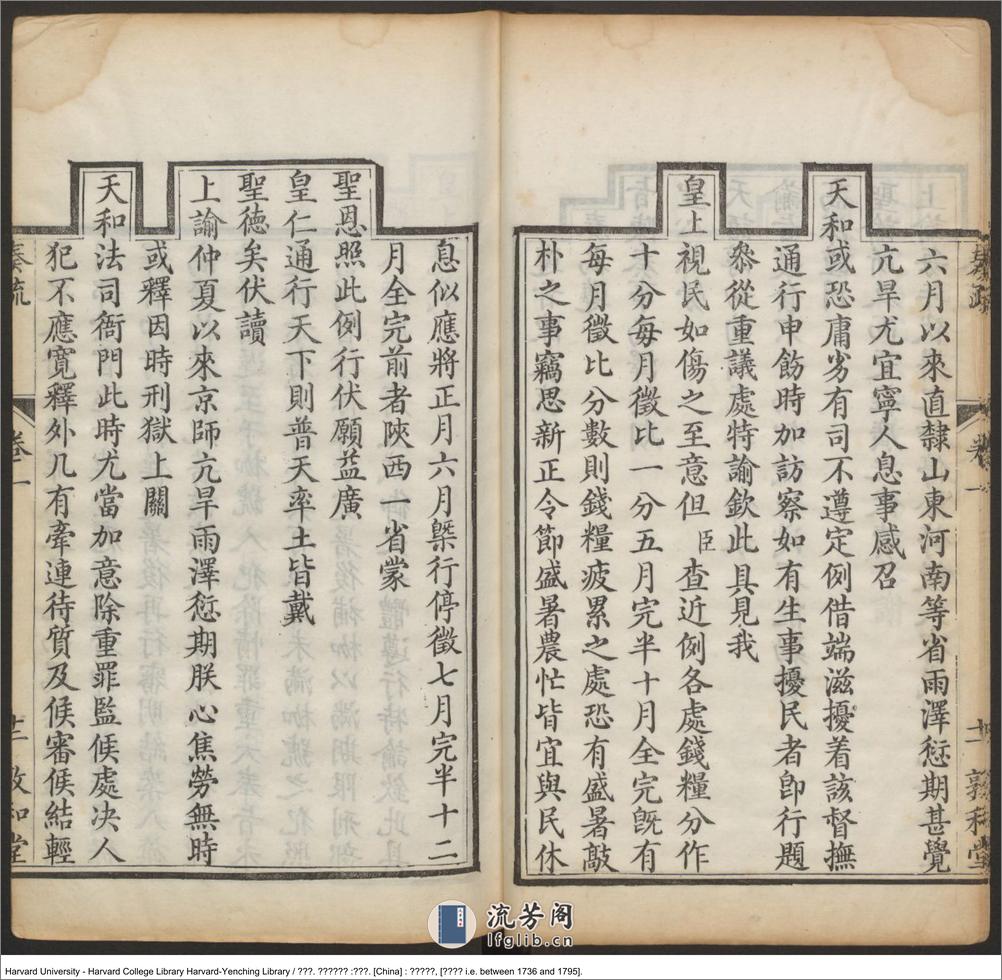 六月以來直隸山東河南等省雨澤愆期甚覺
亢旱尤宜寧人息事感召
天和或恐庸劣有司不遵定例借端滋擾着該督撫
通行申飭時加訪察如有生事擾民者卽行題
叅從重議處特諭欽此具見我
皇上視民如傷之至意但臣查近例各處錢糧分作
十分每月徵比一分五月完半十月全完旣有
每月徵比分數則錢糧疲累之處恐有盛暑敲
朴之事竊思新正令節盛暑農忙皆宜與民休
息似應將正月六月槩行停徵七月完半十二
月全完前者陝西一省蒙
聖恩照此例行伏願益廣
皇仁通行天下則普天率土皆戴
聖德矣伏讀
上諭仲夏以來京師亢旱雨澤愆期朕心焦勞無時
或釋因時刑獄上關
天和法司衙門此時尤當加意除重罪監候處决人
犯不應寬釋外凡有牽連待質及候審候結輕
奏疏 卷一 十二 敦和堂
流芳阁
lfglib.cn
Harvard University - Harvard College Library Harvard-Yenching Library / ???. ?????? :???. [China] : ?????, [???? i.e. between 1736 and 1795].